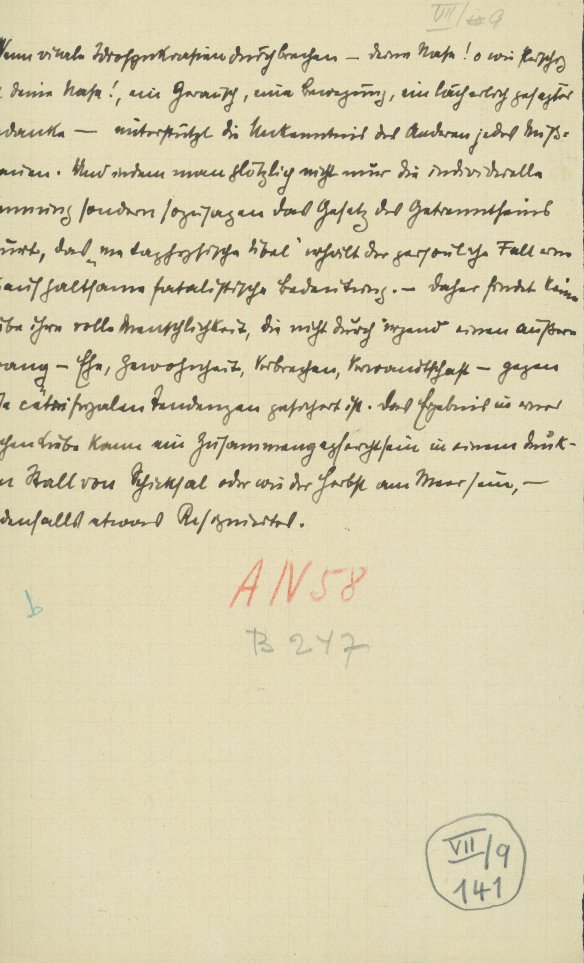 VII/9
Wenn vitale Idiosynkrasien durchbrechen – deine Nase! o wie
deine Nase!, ein Geräusch, eine Bewegung, ein lächerlich gesagter
danke — unterstützt die Unkenntnis des Anderen jedes Miß-
auen. Und indem man plötzlich nicht nur die individuelle
mmung sondern sozusagen das Gesetz des Getrenntseins
purt, das „metaphysische Übel" erhält der persönliche Fall eine
aushaltsame fatalistische Bedeutung. – Daher findet keine
ebe ihre volle Menschlichkeit, die nicht durch irgend einen äußern
wang – Ehe, Gewohnheit, Verbrechen, Verwandtschaft – gegen
centrifugalen Tendenzen gesichert ist. Das Ergebnis in einer
chen Liebe kann ein Zusammengepferchtsein in einem dunk-
n Stall von Schicksal oder wie der Herbst am Meer sein, –
denfalls etwas Resigniertes.
AN 58
b
B 247
VII/9
141